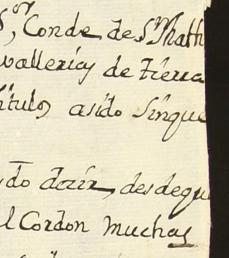 Conde de Sn Matth
vallerias de tierra
titulo, asido sinque
do dezir, desdequ
l Cordon muchas